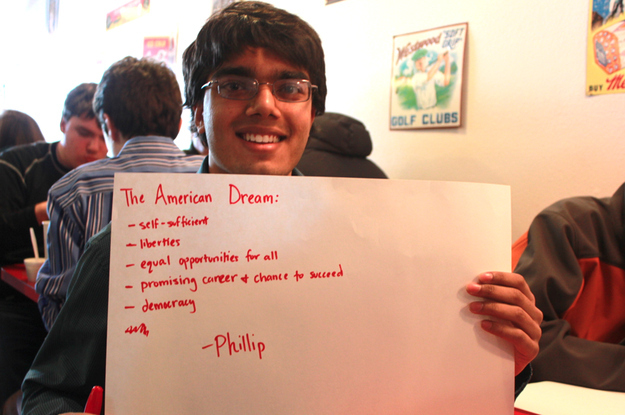 Westwood "SOFT GRIP"
GOLF CLUBS
BUY
The American Dream:
- self-sufficient
- liberties
- equal opportunities for all
- promising career & chance to succeed
- democracy
- Phillip